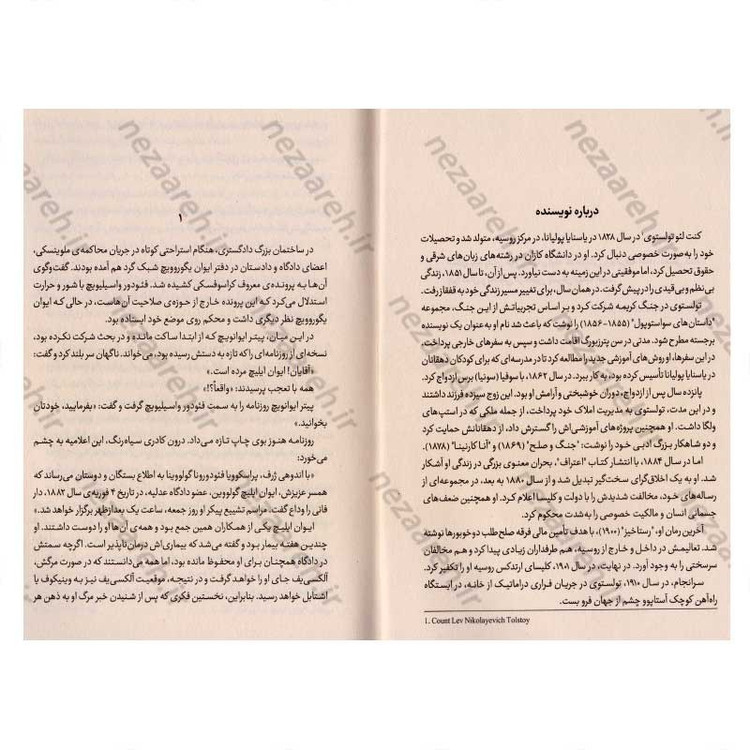 درباره نویسنده
کنت لئو تولستوی¹ در سال ۱۸۲۸ در یاسنایا پولیانا، در مرکز روسیه، متولد شد و تحصیلات
خود را به‌صورت خصوصی دنبال کرد. او در دانشگاه کازان در رشته‌های زبان‌های شرقی و
حقوق تحصیل کرد، اما موفقیتی در این زمینه به دست نیاورد. پس از آن، تا سال ۱۸۵۱، زندگی
بی‌نظم و بی‌قیدی را در پیش گرفت. در همان سال، برای تغییر مسیر زندگی خود به قفقاز رفت.
تولستوی در جنگ کریمه شرکت کرد و بر اساس تجربیاتش از این جنگ، مجموعه
"داستان‌های سواستوپول" (۱۸۵۵-۱۸۵۶) را نوشت که باعث شد نام او به‌عنوان یک نویسنده
برجسته مطرح شود. مدتی در سن پترزبورگ اقامت داشت و سپس به سفرهای خارجی پرداخت.
در این سفرها، او روش‌های آموزشی جدید را مطالعه کرد تا در مدرسه‌ای که برای کودکان دهقانان
در یاسنایا پولیانا تأسیس کرده بود، به کار ببرد. در سال ۱۸۶۲، با سوفیا (سونیا) برس ازدواج کرد.
پانزده سال پس از ازدواج، دوران خوشبختی و آرامش او بود. این زوج سیزده فرزند داشتند
و در این مدت، تولستوی به مدیریت املاک خود پرداخت، از جمله ملکی که در استپ‌های
ولگا داشت. او همچنین پروژه‌های آموزشی‌اش را گسترش داد، از دهقانانش حمایت کرد
و دو شاهکار بزرگ ادبی خود را نوشت: "جنگ و صلح" (۱۸۶۹) و "آنا کارنینا" (۱۸۷۸).
اما در سال ۱۸۸۴، با انتشار کتاب "اعتراف"، بحران معنوی بزرگی در زندگی او آشکار
شد. او به یک اخلاق‌گرای سخت‌گیر تبدیل شد و از سال ۱۸۸۰ به بعد، در مجموعه‌ای از
رساله‌های خود، مخالفت شدیدش را با دولت و کلیسا اعلام کرد. او همچنین ضعف‌های
جسمانی انسان و مالکیت خصوصی را به‌شدت محکوم کرد.
آخرین رمان او، "رستاخیز" (۱۹۰۰)، با هدف تأمین مالی فرقه صلح‌طلب دوخوبورها نوشته
شد. تعالیمش در داخل و خارج از روسیه، هم طرفداران زیادی پیدا کرد و هم مخالفان
سرسختی را به وجود آورد. در نهایت، در سال ۱۹۰۱، کلیسای ارتدکس روسیه او را تکفیر کرد.
سرانجام، در سال ۱۹۱۰، تولستوی در جریان فراری دراماتیک از خانه، در ایستگاه
راه‌آهن کوچک آستاپوو چشم از جهان فرو بست.
1. Count Lev Nikolayevich Tolstoy
۱
در ساختمان بزرگ دادگستری، هنگام استراحتی کوتاه در جریان محاکمه‌ی ملوینسکی،
اعضای دادگاه و دادستان در دفتر ایوان یگوروویچ شبک گرد هم آمده بودند. گفت‌وگوی
آن‌ها به پرونده‌ی معروف کراسوفسکی کشیده شد. فئودور واسیلیویچ با شور و حرارت
استدلال می‌کرد که این پرونده خارج از حوزه‌ی صلاحیت آن‌هاست، در حالی که ایوان
یگوروویچ نظر دیگری داشت و محکم روی موضع خود ایستاده بود.
در این میان، پیتر ایوانویچ که از ابتدا ساکت مانده و در بحث شرکت نکرده بود،
نسخه‌ای از روزنامه‌ای را که تازه به دستش رسیده بود، می‌خواند. ناگهان سر بلند کرد و گفت:
«آقایان! ایوان ایلیچ مرده است.»
همه با تعجب پرسیدند: «واقعاً؟!»
پیتر ایوانویچ روزنامه را به سمت فئودور واسیلیویچ گرفت و گفت: «بفرمایید، خودتان
بخوانید.»
روزنامه هنوز بوی چاپ تازه می‌داد. درون کادری سیاه‌رنگ، این اعلامیه به چشم
می‌خورد:
«با اندوهی ژرف، پراسکوویا فئودورونا گولووینا به اطلاع بستگان و دوستان می‌رساند که
همسر عزیزش، ایوان ایلیچ گولووین، عضو دادگاه عدلیه، در تاریخ ۴ فوریه‌ی سال ۱۸۸۲، دار
فانی را وداع گفت. مراسم تشییع پیکر او روز جمعه، ساعت یک بعدازظهر برگزار خواهد شد.»
ایوان ایلیچ یکی از همکاران همین جمع بود و همه‌ی آن‌ها او را دوست داشتند. او
چندین هفته بیمار بود و گفته می‌شد که بیماری‌اش درمان‌ناپذیر است. اگرچه سمتش
در دادگاه همچنان برای او محفوظ مانده بود، اما همه می‌دانستند که در صورت مرگش،
آلکسی‌یف جای او را خواهد گرفت و در نتیجه، موقعیت آلکسی‌یف نیز به وینیکوف یا
اشتابل خواهد رسید. بنابراین، نخستین فکری که پس از شنیدن خبر مرگ او به ذهن هر
nezaareh.ir
nezaareh.ir
nezaareh.ir
nezaareh.ir
nezaareh.ir
nezaareh.ir